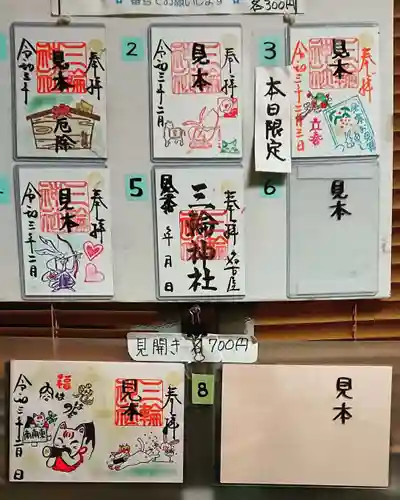 番号でお願いします
各300円
奉拝
見本
令和三年二月
厄除
2
奉拝
見本
令和三年二月
3
奉拝
見本
令和三年二月三日
立春
本日限定
奉拝
見本
令和三年二月
5
奉拝
三輪神社
見本
年 月 日
名古屋
6
見本
見開き 各700円
奉拝
見本
福は内
令和三年二月 日
8
見本